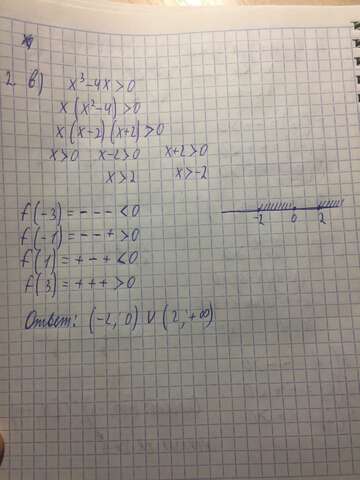 2 в) x³-4x>0
x(x²-4)>0
x(x-2)(x+2)>0
x>0 x-2>0 x+2>0
x>2 x>-2
f(-3)=---<0
f(-1)=--+>0
f(1)=+-+<0
f(3)=+++>0
-2 0 2
Ответ: (-2; 0) ∪ (2; +∞)